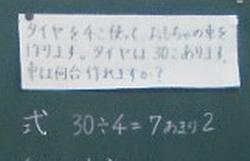 タイヤを4こ使って おもちゃの車を
作ります。タイヤは30こあります。
車は何台作れますか?
式 30÷4=7あまり2